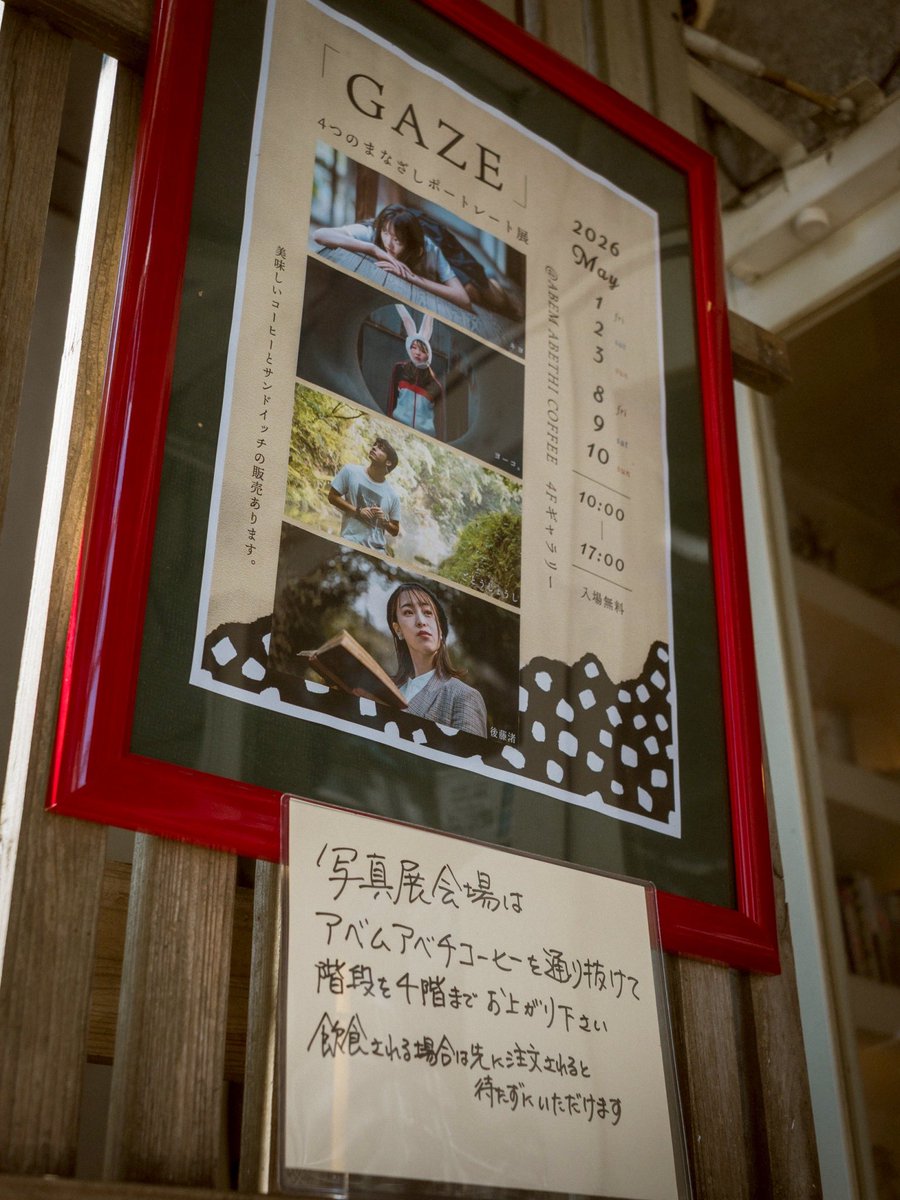 「GAZE」
4つのまなざしポートレート展
2026
May
1 fri
2 sat
3 sun
8 fri
9 sat
10 sun
10:00
|
17:00
入場無料
@ABEM ABETHI COFFEE 4Fギャラリー
ヨーコ。
ごとうじょうじ
後藤渚
美味しいコーヒーとサンドイッチの販売あります。
写真展会場は
アベムアベチコーヒーを通り抜けて
階段を4階まで お上がり下さい
飲食される場合は先に注文されると
待たずにいただけます